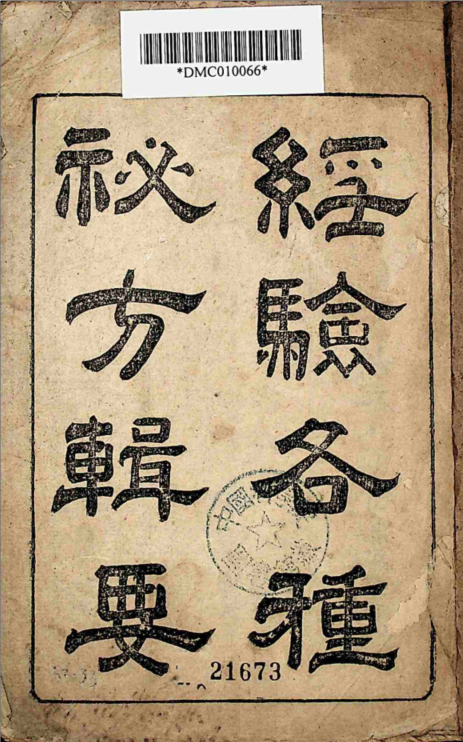 *DMC010066*
經驗各種
祕方輯要
中國
21673